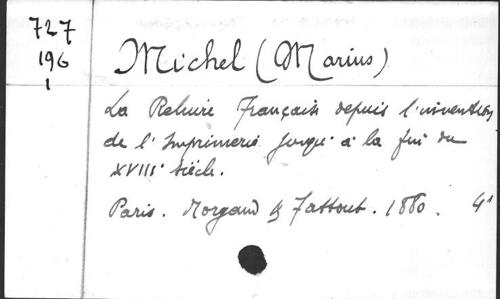 727
196
1
Michel (Marius)
La Reliure Française depuis l'invention
de l'Imprimerie jusqu'à la fin du
XVIIIe siècle.
Paris. Morgand & Fattout. 1880. 4°